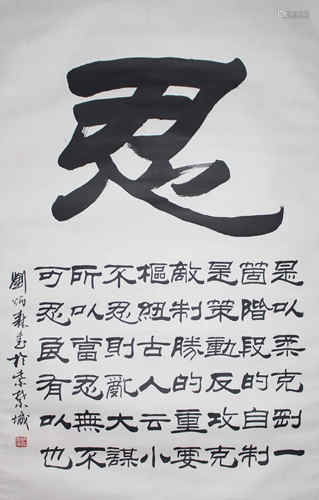 忍
是以柔克剛一
箇階段的自制
是策動反攻克
敵制勝的重要
樞紐古人云小
不忍則亂大謀
所以當忍無不
可忍良有以也
劉炳森書於紫禁城